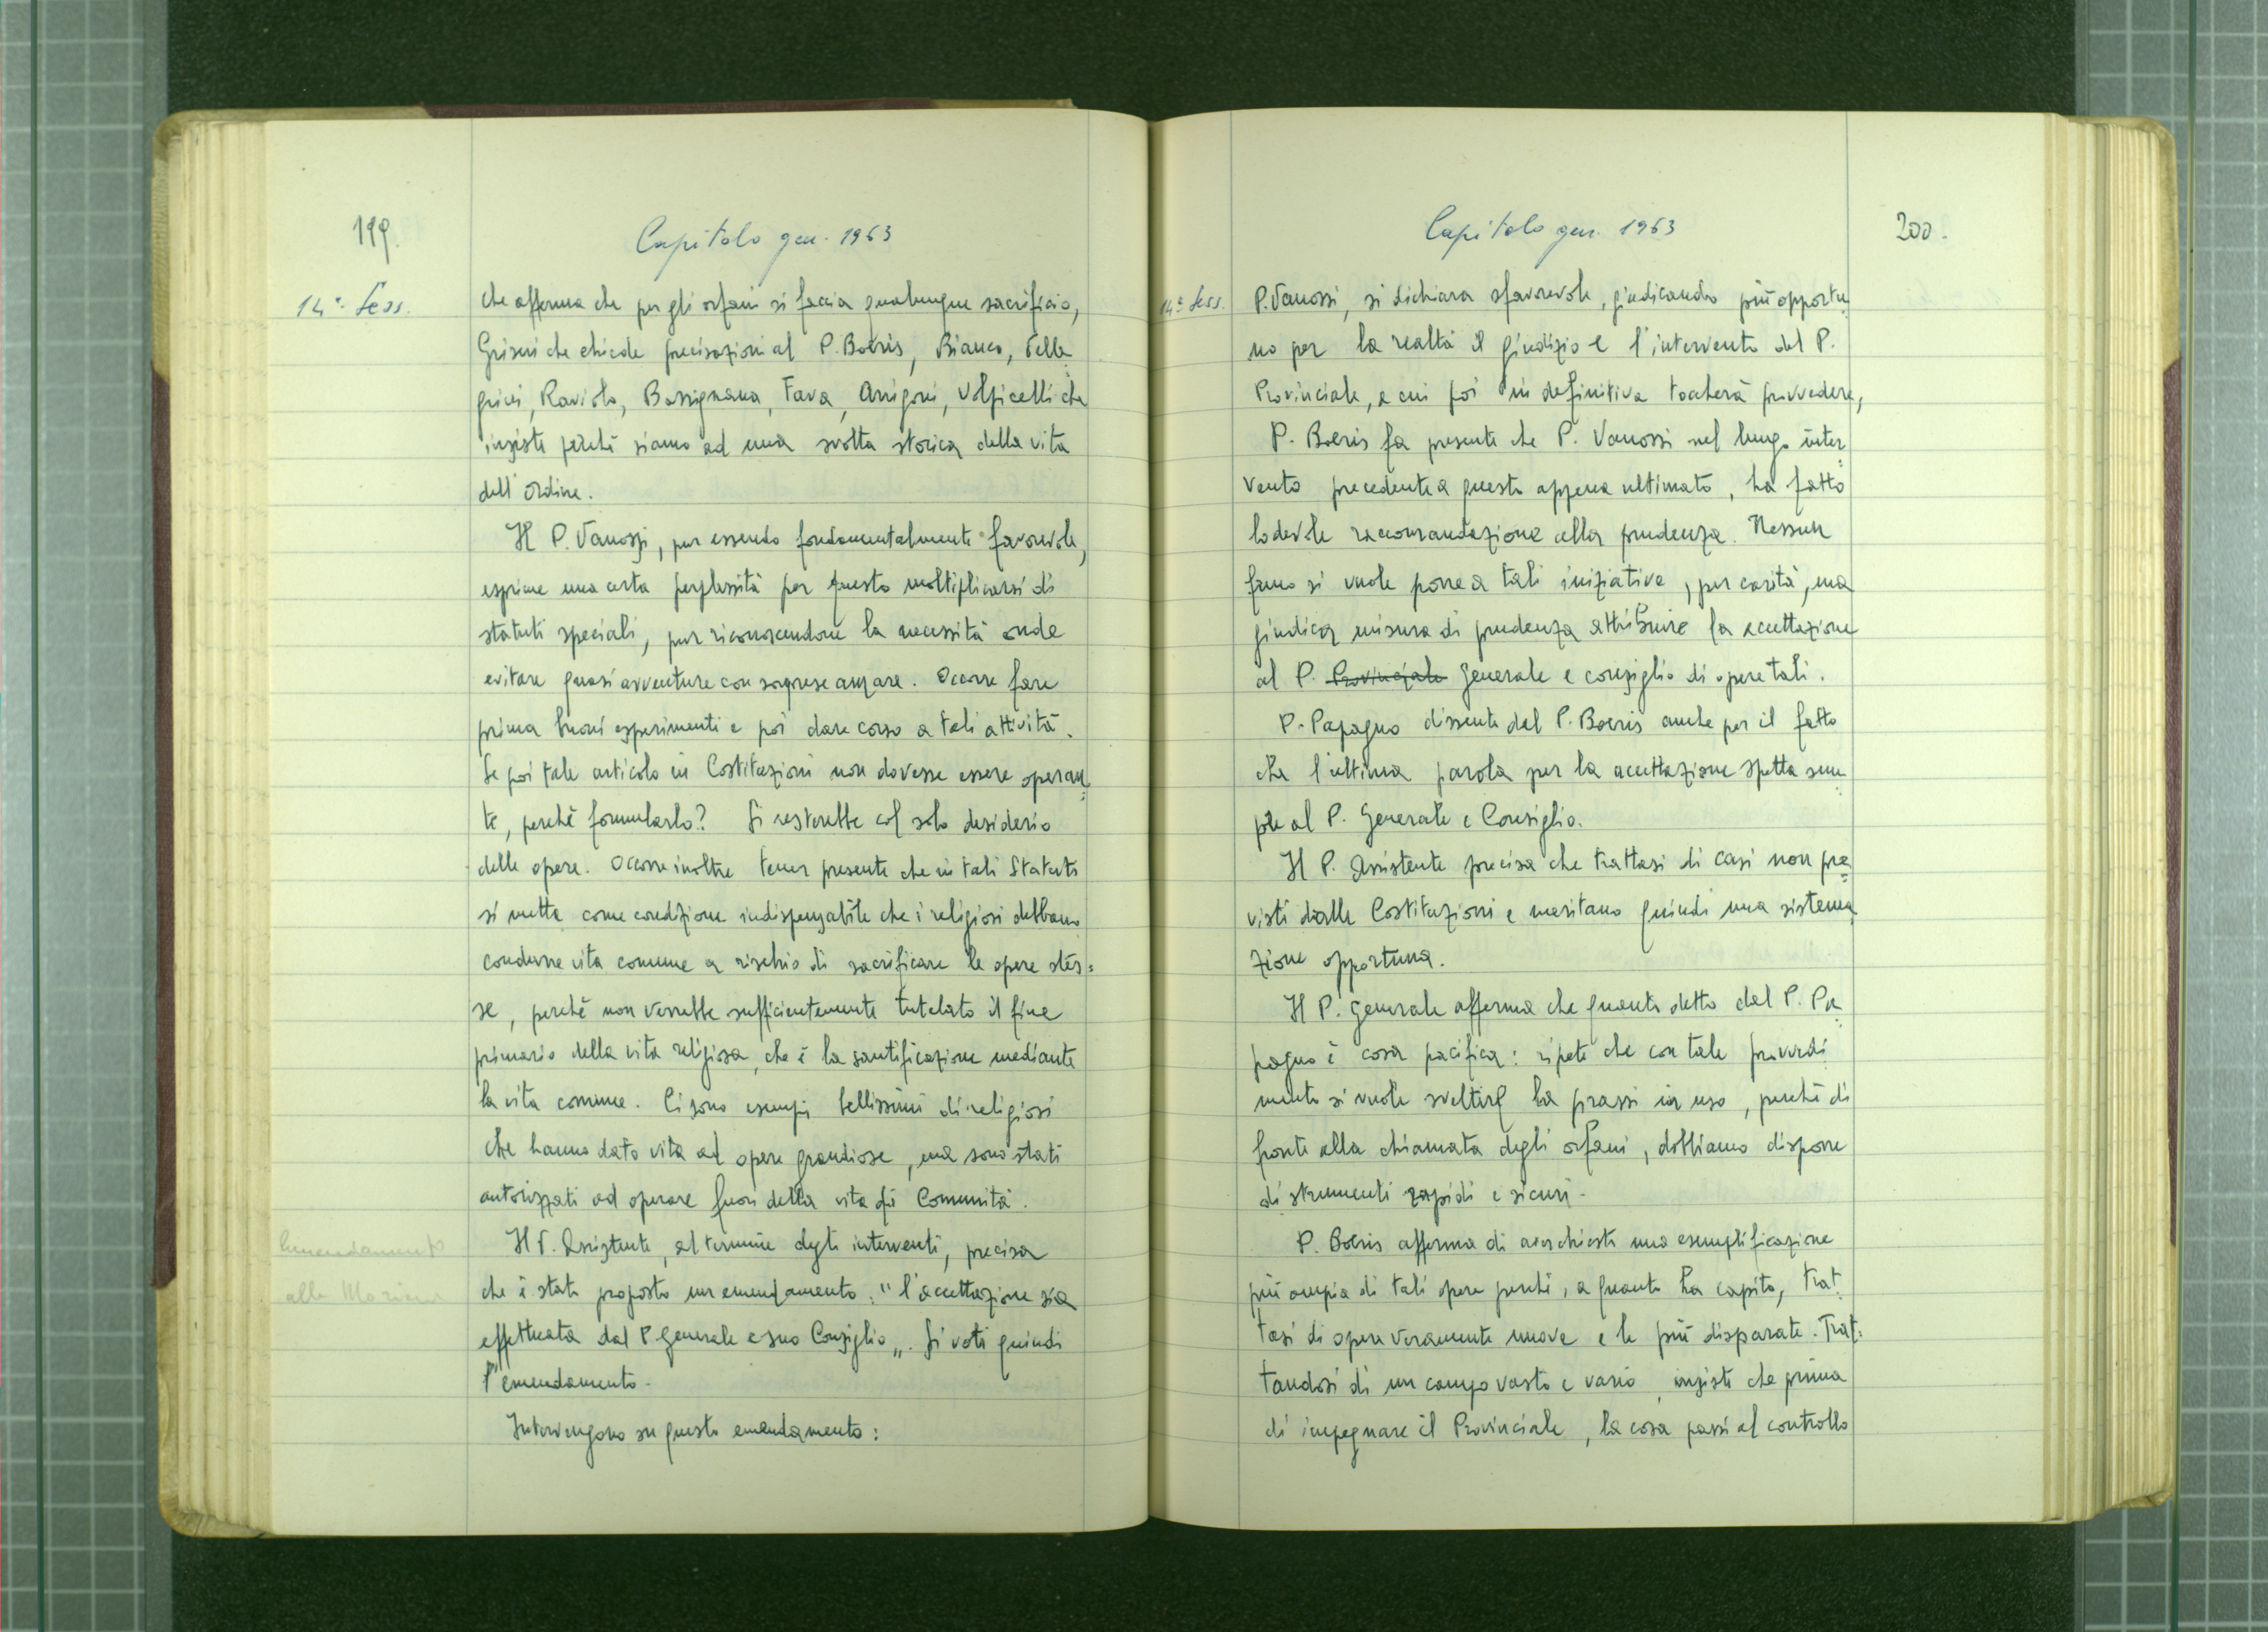 199.
Capitolo gen. 1963
14ª Sess.
che afferma che per gli orfani si faccia qualunque sacrificio,
Griseri che chiede precisazioni al P. Boeris, Bianco, Pelle
grini, Raviolo, Bassignana, Fava, Arrigoni, Volpicelli che
insiste perché siamo ad una svolta storica della vita
dell'Ordine.
Il P. Vanossi, pur essendo fondamentalmente favorevole,
esprime una certa perplessità per questo moltiplicarsi di
statuti speciali, pur riconoscendone la necessità onde
evitare quasi avventure con sorprese amare. Occorre fare
prima buoni esperimenti e poi dare corso a tali attività.
Se poi tale articolo in Costituzioni non dovesse essere operan
te, perché formularlo? Si resterebbe col solo desiderio
delle opere. Occorre inoltre tener presente che in tali Statuti
si metta come condizione indispensabile che i religiosi debbano
condurre vita comune a rischio di sacrificare le opere stes=
se, perché non verrebbe sufficientemente tutelato il fine
primario della vita religiosa, che è la santificazione mediante
la vita comune. Ci sono esempi bellissimi di religiosi
che hanno dato vita ad opere grandiose, ma sono stati
autorizzati ad operare fuori della vita di Comunità.
Emendamento
alla Mozione
Il P. Assistente, al termine degli interventi, precisa
che è stato proposto un emendamento: "l'accettazione sia
effettuata dal P. Generale e suo Consiglio„. Si voti quindi
l'emendamento.
Intervengono su questo emendamento:
Capitolo gen. 1963
200.
14ª Sess.
P. Vanossi, si dichiara sfavorevole, giudicando più opportu
no per la realtà il giudizio e l'intervento del P.
Provinciale, a cui poi in definitiva toccherà provvedere,
P. Boeris fa presente che P. Vanossi nel lungo inter
vento precedente a questo appena ultimato, ha fatto
lodevole raccomandazione alla prudenza. Nessun
freno si vuole porre a tali iniziative, per carità, ma
giudica misura di prudenza attribuire la accettazione
al P. Provinciale Generale e consiglio di opere tali.
P. Papagno dissente dal P. Boeris anche per il fatto
che l'ultima parola per la accettazione spetta sem
pre al P. Generale e Consiglio.
Il P. Assistente precisa che trattasi di casi non pre
visti dalle Costituzioni e meritano quindi una sistema
zione opportuna.
Il P. Generale afferma che quanto detto dal P. Pa
pagno è cosa pacifica: ripete che con tale provvedi
mento si vuole sveltire la prassi in uso, perché di
fronte alla chiamata degli orfani, dobbiamo disporre
di strumenti rapidi e sicuri.
P. Boeris afferma di aver chiesto una esemplificazione
più ampia di tali opere perché, a quanto ha capito, trat
tasi di opere veramente nuove e le più disparate. Trat=
tandosi di un campo vasto e vario, insiste che prima
di impegnare il Provinciale, la cosa passi al controllo